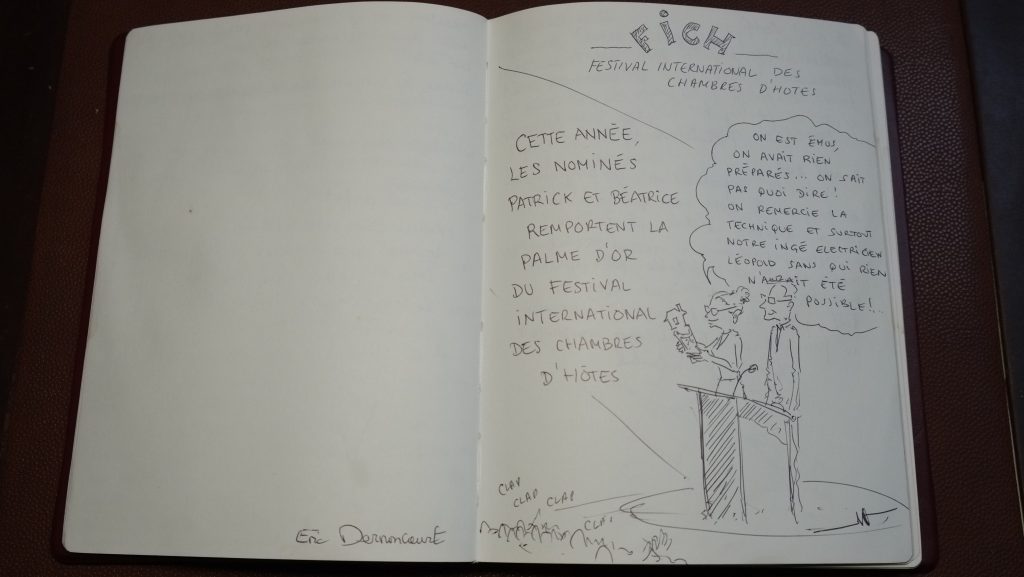 Eric Dernoncourt
FICH
FESTIVAL INTERNATIONAL DES
CHAMBRES D'HOTES
CETTE ANNÉE,
LES NOMINÉS
PATRICK ET BÉATRICE
REMPORTENT LA
PALME D'OR
DU FESTIVAL
INTERNATIONAL
DES CHAMBRES
D'HÔTES
ON EST ÉMUS,
ON AVAIT RIEN
PRÉPARÉS... ON SAIT
PAS QUOI DIRE!
ON REMERCIE LA
TECHNIQUE ET SURTOUT
NOTRE INGÉ ELECTRICIEN
LÉOPOLD SANS QUI RIEN
N'AURAIT ÉTÉ
POSSIBLE!..
CLAP
CLAP
CLAP
CLAP